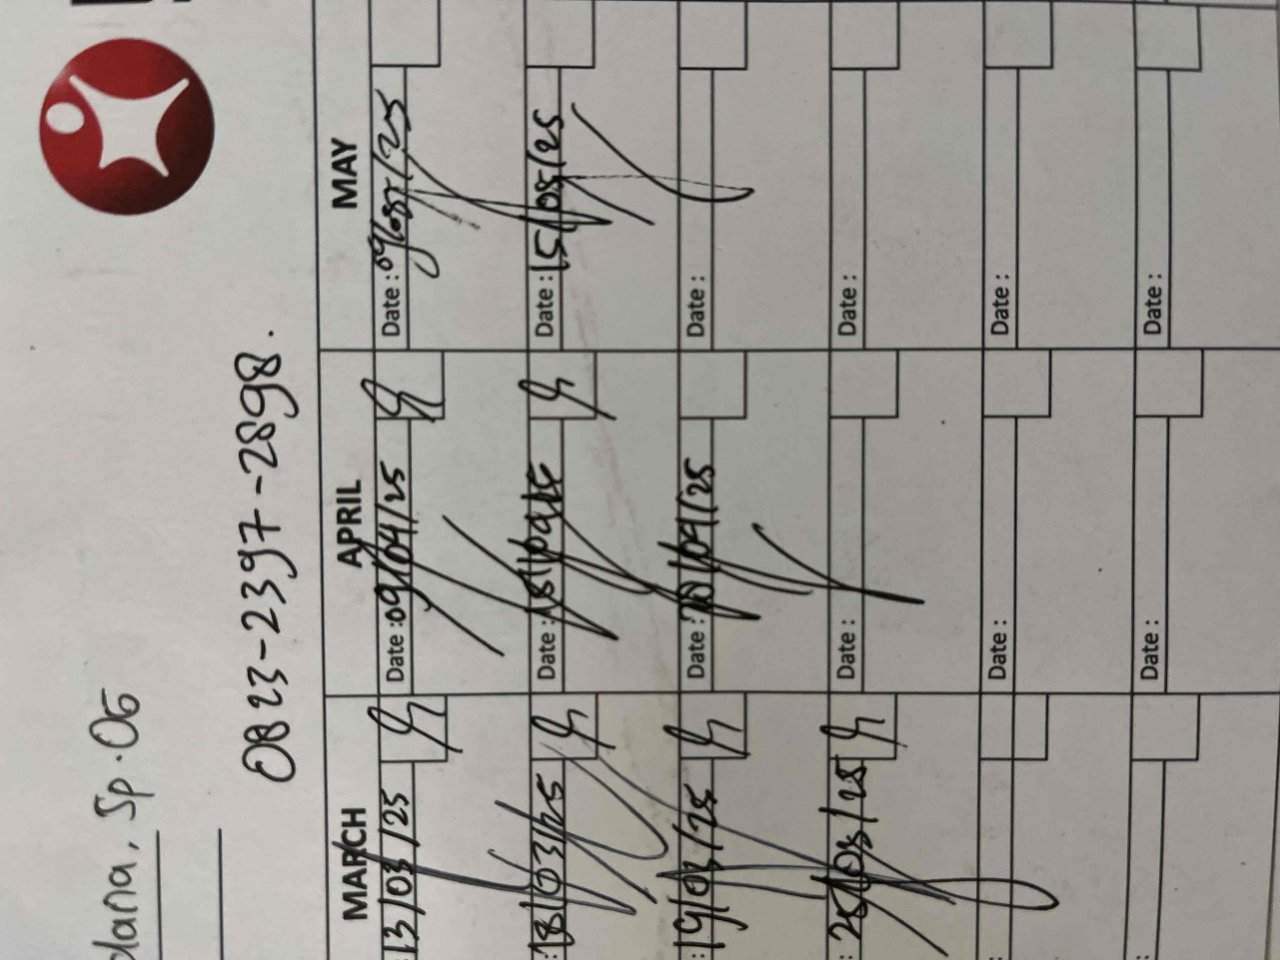 dana, Sp.OG
0823-2397-2898.
MARCH APRIL MAY
13/03/25 Date : 09/04/25 Date : 09/05/25
: 18/03/25 Date : 18/04/25 Date : 15/05/25
: 19/03/25 Date : /04/25 Date :
: 25/03/25 Date : Date :
: Date : Date :
: Date : Date :